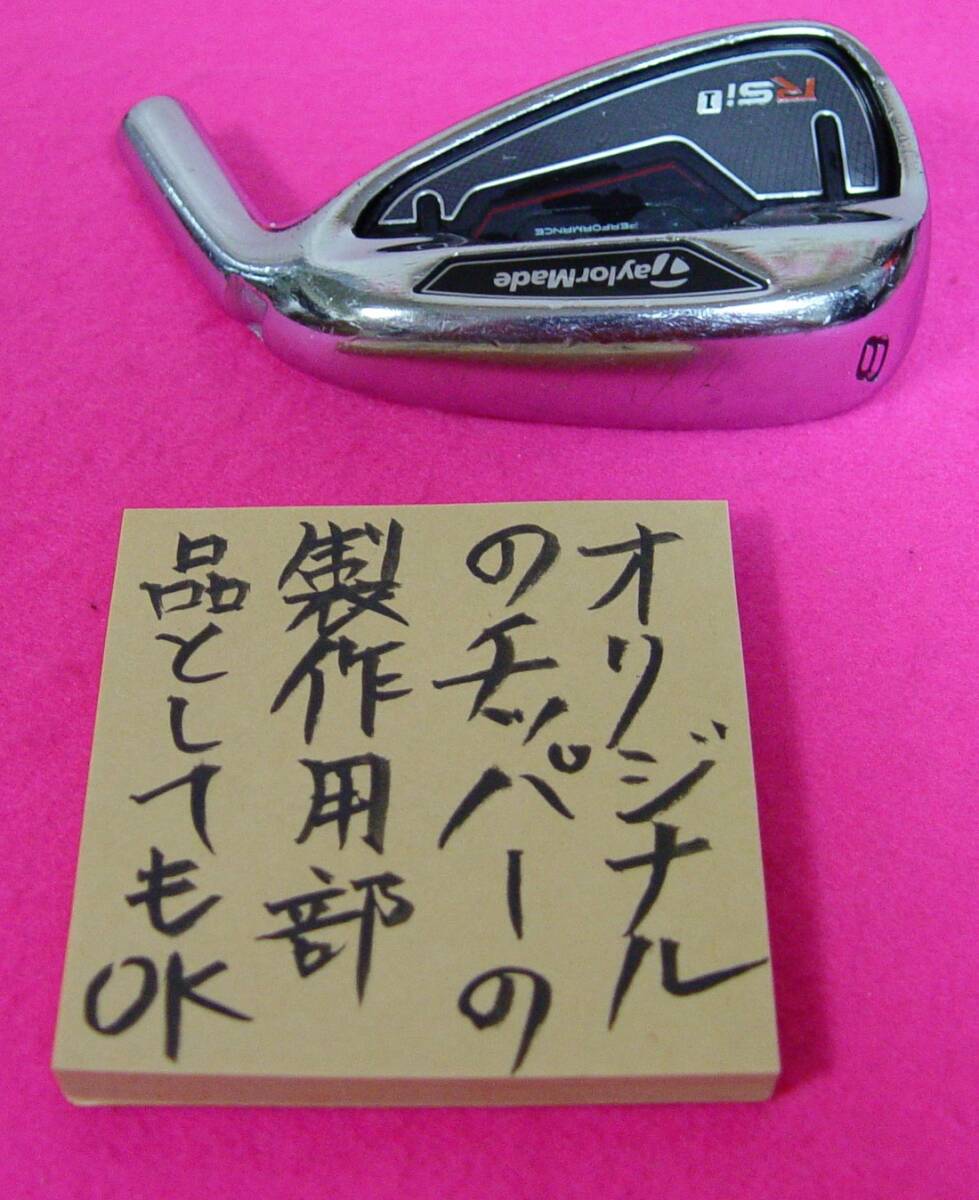 RSi 1
PERFORMANCE
TaylorMade
8
オリジナル
のチッパーの
製作用部
品としてもOK